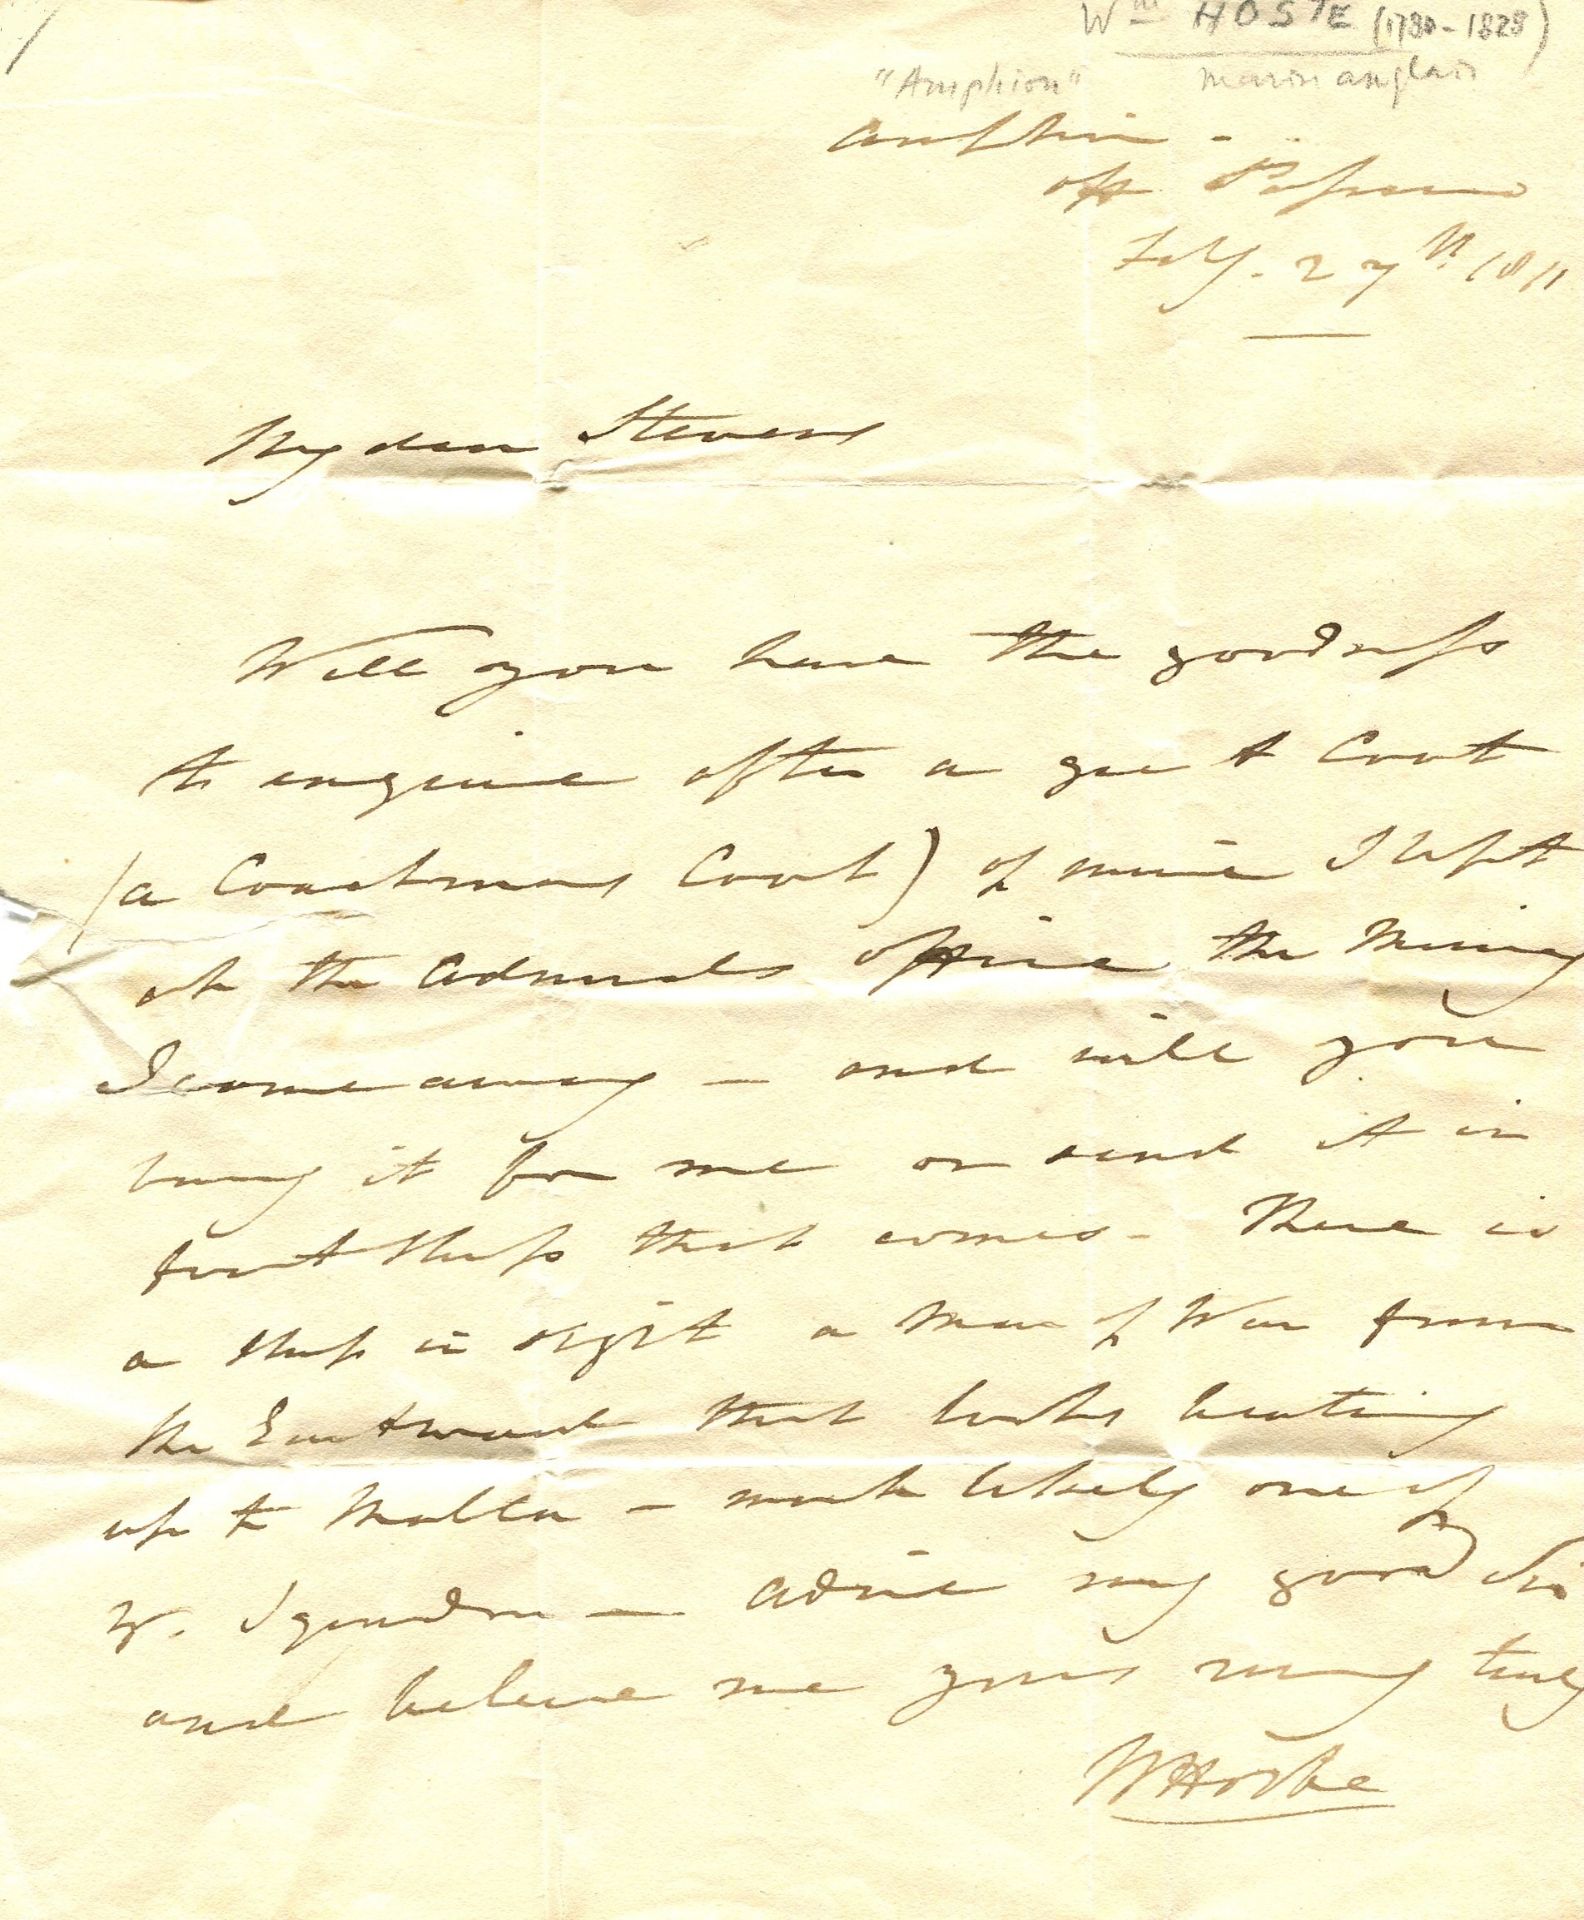 Wm HOSTE (1780-1828)
"Amphion" marin anglais
Amphion -
off Passaro
Feby. 27th 1811
My dear Stevens
Will you have the goodness
to enquire after a great Coat
(a Coachmans Coat) of mine I left
at the Admirals office the Morning
I came away - and will you
bring it for me or send it in
first Ship that comes - There is
a Ship in sight a Man of War from
the Eastward that looks beating
up to Malta - most likely one of
Squadron - adieu my good Sir
and believe me yours very truly
WHoste